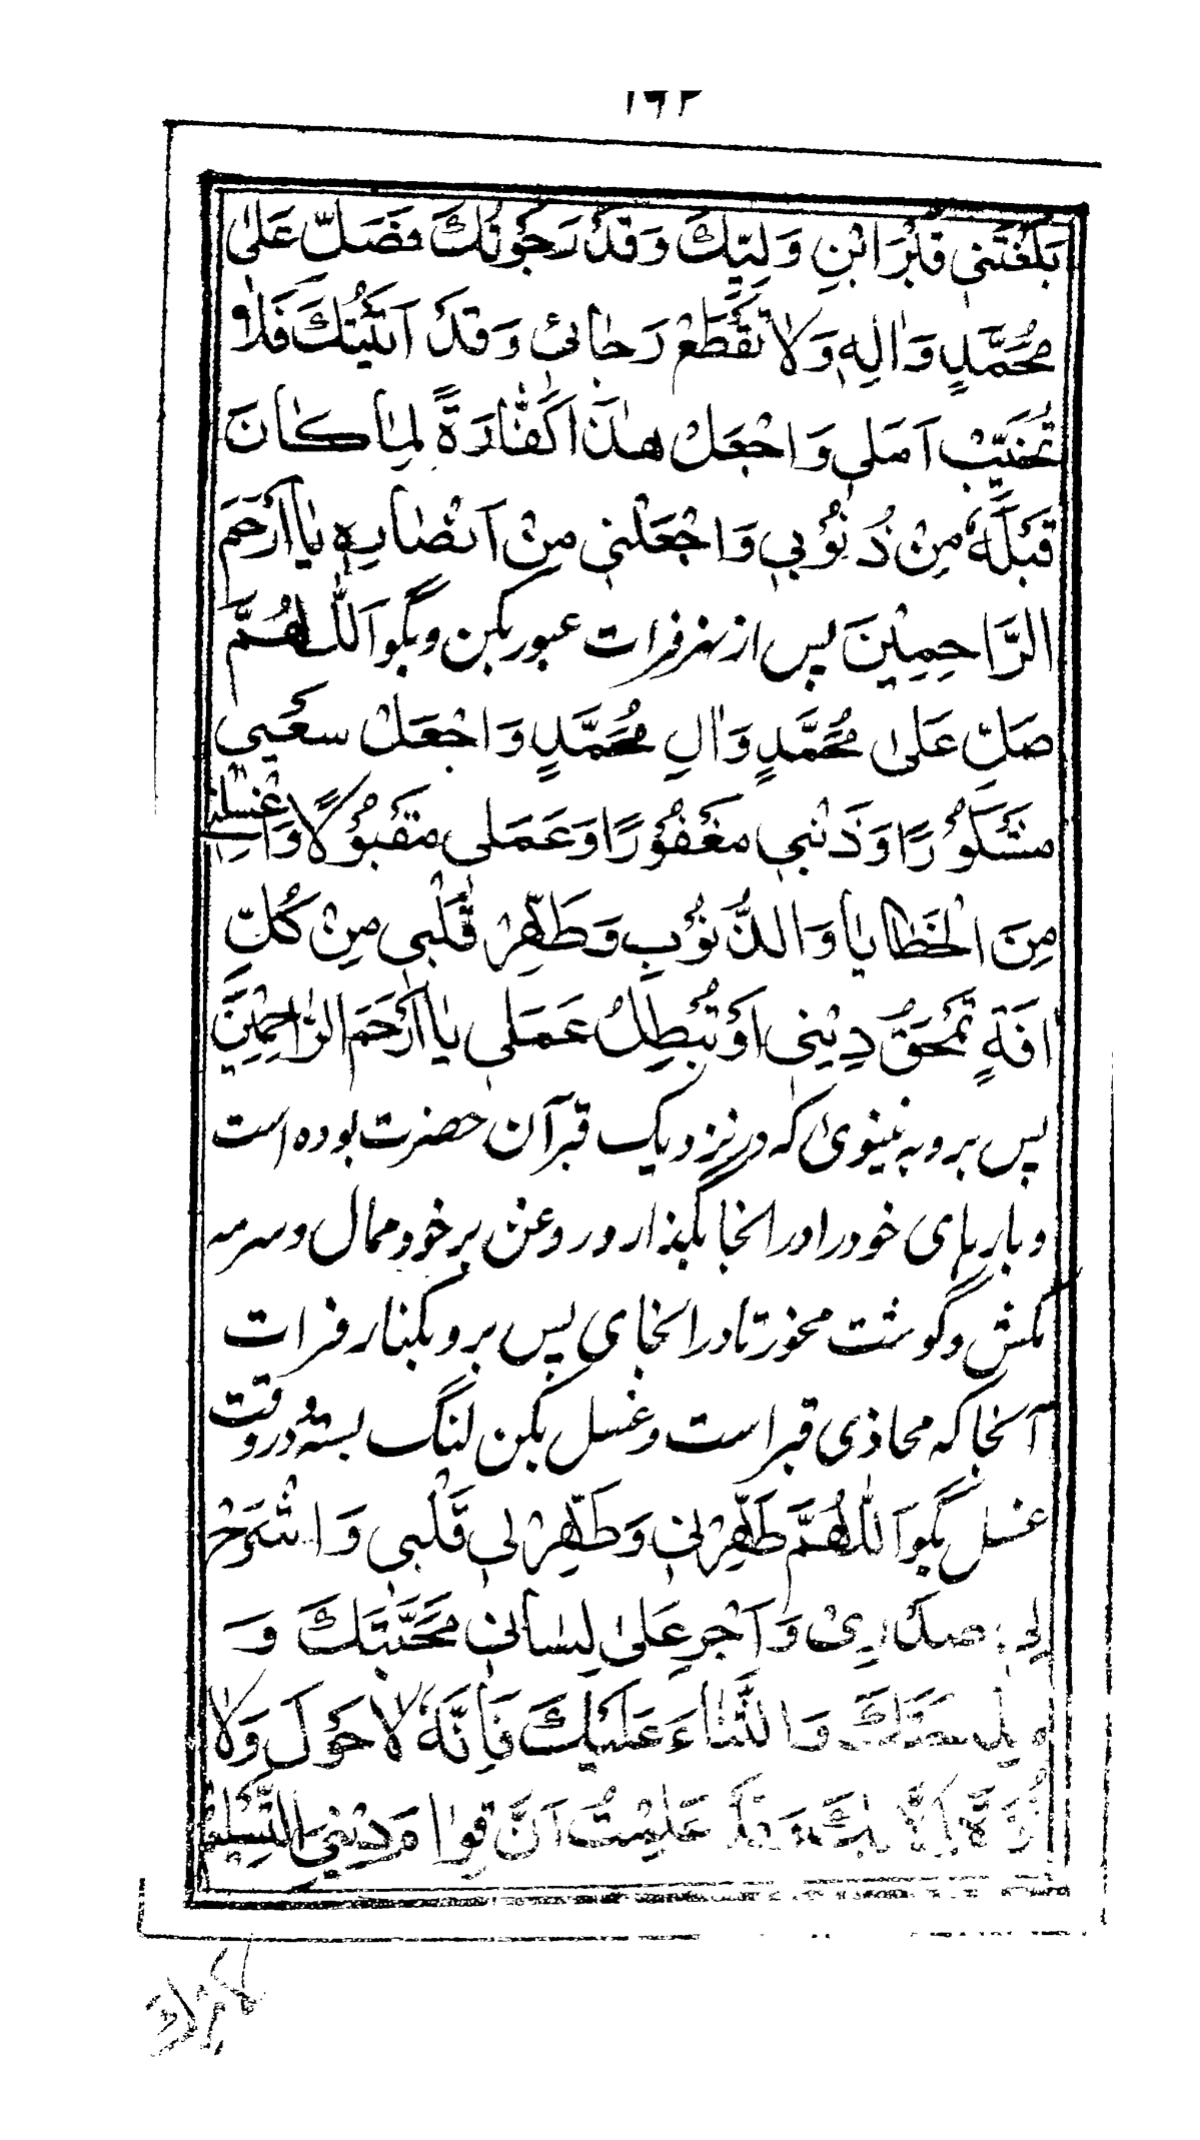 ۱۶۲
بَلَّغْتَنِي قَبْرَ ابْنِ وَلِيِّكَ وَقَدْ رَجَوْتُكَ فَصَلِّ عَلىٰ
مُحَمَّدٍ وَاٰلِهِ وَلاٰ تَقْطَعْ رَجٰائِی وَقَدْ اَتَيْتُكَ فَلاٰ
تُخَيِّبْ اَمَلِي وَاجْعَلْ هٰذٰا كَفّٰارَةً لِمٰا كٰانَ
قَبْلَهُ مِنْ ذُنُوْبِي وَاجْعَلْنِي مِنْ اَنْصٰارِهِ يٰا اَرْحَمَ
الرّٰاحِمِيْنَ پس از نهر فرات عبور بکن و بگو اَللّٰهُمَّ
صَلِّ عَلىٰ مُحَمَّدٍ وَاٰلِ مُحَمَّدٍ وَاجْعَلْ سَعْيِي
مَشْكُوْرًا وَذَنْبِي مَغْفُوْرًا وَعَمَلِي مَقْبُوْلًا وَاغْسِلْنِي
مِنَ الْخَطٰايٰا وَالذُّنُوْبِ وَطَهِّرْ قَلْبِي مِنْ كُلِّ
اٰفَةٍ تَمْحَقُ دِيْنِي اَوْ تُبْطِلُ عَمَلِي يٰا اَرْحَمَ الرّٰاحِمِيْنَ
پس برو به نینوی که در نزدیک قبر آن حضرت بوده است
و بارهای خود را در انجا بگذار و روغن بر خود ممال و سرمه
مکش و گوشت مخور تا در انجای پس برو بکنار فرات
آنجا که محاذی قبر است و غسل بکن لنگ بسته و در وقت
غسل بگو اَللّٰهُمَّ طَهِّرْنِي وَطَهِّرْ لِي قَلْبِي وَاشْرَحْ
لِي صَدْرِيْ وَاَجْرِ عَلىٰ لِسٰانِي مَحَبَّتَكَ وَ
مِدْحَتَكَ وَالثَّنٰاءَ عَلَيْكَ فَاِنَّهُ لاٰ حَوْلَ وَلاٰ
قُوَّةَ اِلّٰا بِكَ وَقَدْ عَلِمْتُ اَنَّ قِوٰامَ دِيْنِي التَّسْلِيْمُ
لامرك